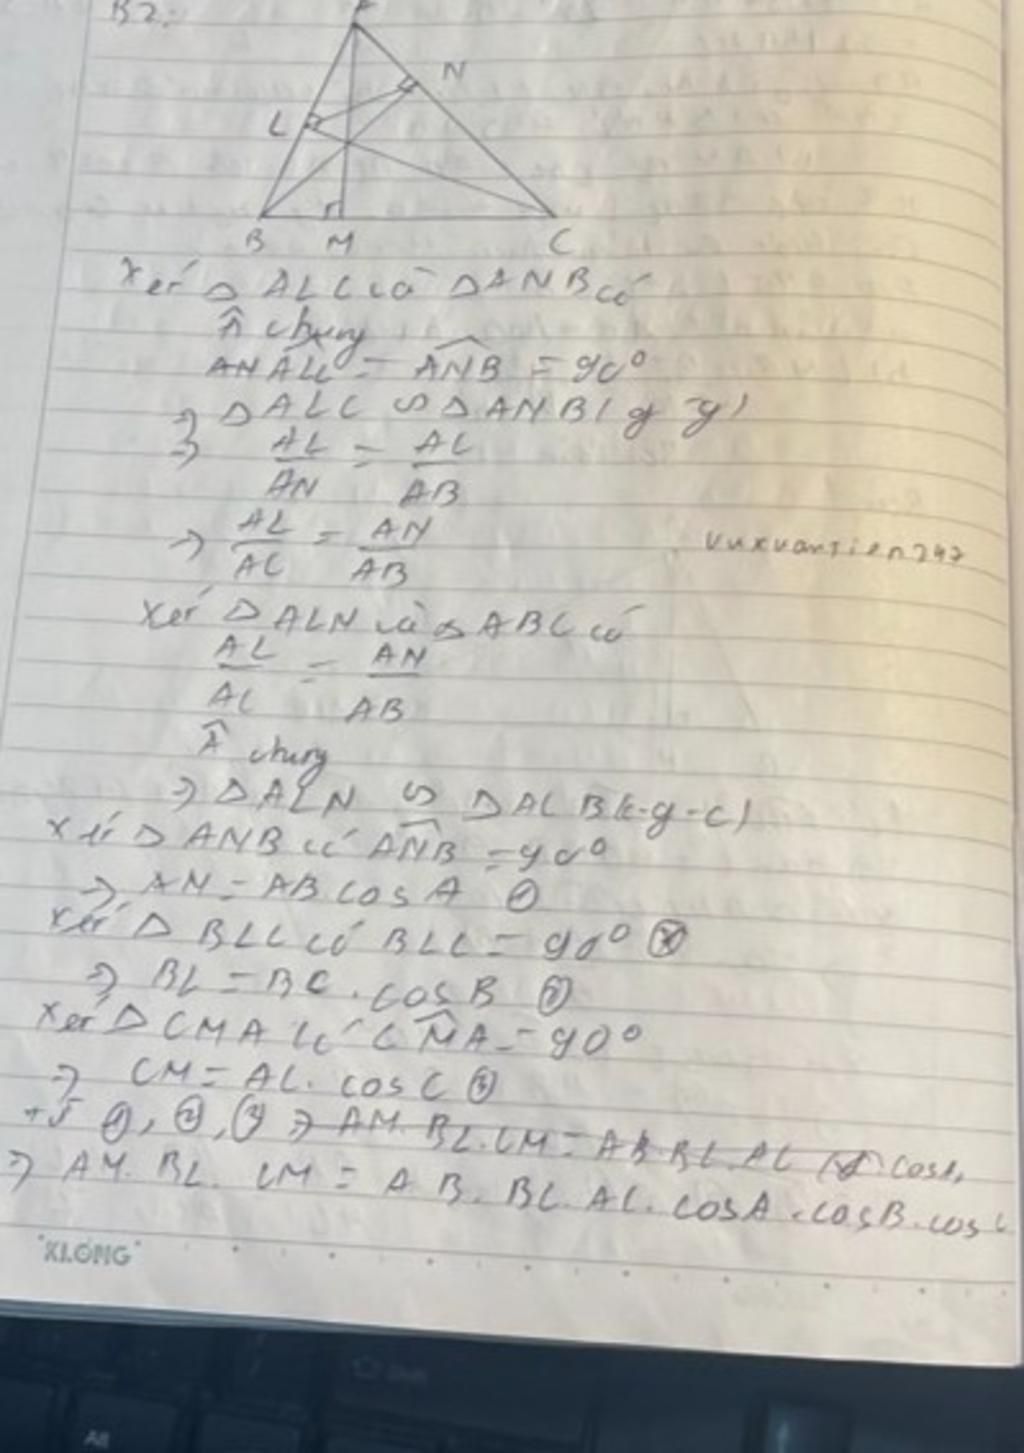 B2:
N
L
B M C
Xét Δ ALC và Δ ANB có
Â chung
AN ALC = ANB = 90°
⇒ Δ ALC ∽ Δ ANB (g-g)
⇒ AL/AN = AC/AB
⇒ AL/AC = AN/AB
vuxuantien247
Xét Δ ALN và Δ ABC có
AL/AC = AN/AB
Â chung
⇒ Δ ALN ∽ Δ ACB (c-g-c)
Xét Δ ANB có ANB = 90°
⇒ AN = AB cos A ①
Xét Δ BLC có BLC = 90°
⇒ BL = BC . cos B ②
Xét Δ CMA có CMA = 90°
⇒ CM = AC . cos C ③
Từ ①, ②, ③ ⇒ AM. BL. CM = AB. BC. AC cosA.
⇒ AM. BL. CM = AB. BC. AC. cosA. cosB. cos C
KLONG
Alt
Shift